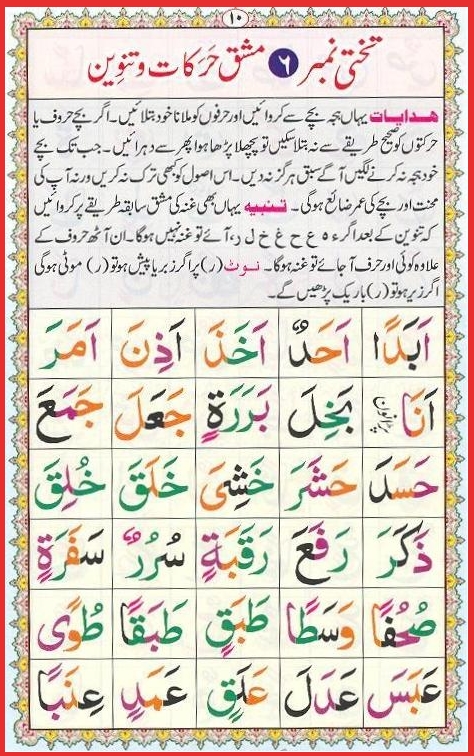 ۱۰
تختی نمبر ۶ مشق حرکات و تنوین
ھدایات یہاں ہجہ بچے سے کروائیں اور حرفوں کو ملانا خود بتلائیں۔ اگر بچے حروف یا
حرکتوں کو صحیح طریقے سے نہ بتلا سکیں تو پچھلا پڑھا ہوا پھر سے دہرائیں۔ جب تک بچے
خود ہجہ نہ کرنے لگیں آگے سبق ہرگز نہ دیں۔ اس اصول کو کبھی ترک نہ کریں ورنہ آپ کی
محنت اور بچے کی عمر ضائع ہوگی۔ تنبیه یہاں بھی غنہ کی مشق سابقہ طریقے پر کروائیں
کہ تنوین کے بعد اگر ء ہ ع ح غ خ ل ر، آئے تو غنہ نہیں ہوگا۔ ان آٹھ حروف کے
علاوہ کوئی اور حرف آجائے تو غنہ ہوگا۔ نوٹ (ر) پر اگر زبر یا پیش ہو تو (ر) موٹی ہوگی
اگر زیر ہو تو (ر) باریک پڑھیں گے۔
اَبَدًا اَحَدٌ اَخَذَ اَذِنَ اَمَرَ
اَنَا بَخِلَ بَرَرَةٍ جَعَلَ جَمَعَ
حَسَدَ حَشَرَ خَشِیَ خَلَقَ خُلِقَ
ذَكَرَ رَفَعَ رَقَبَةٍ سُرُرٌ سَفَرَةٍ
صُحُفًا وَسَطًا طَبَقٍ طَبَقًا طُوًی
عَبَسَ عَدَلَ عَلَقٍ عَمَدٍ عِنَبًا